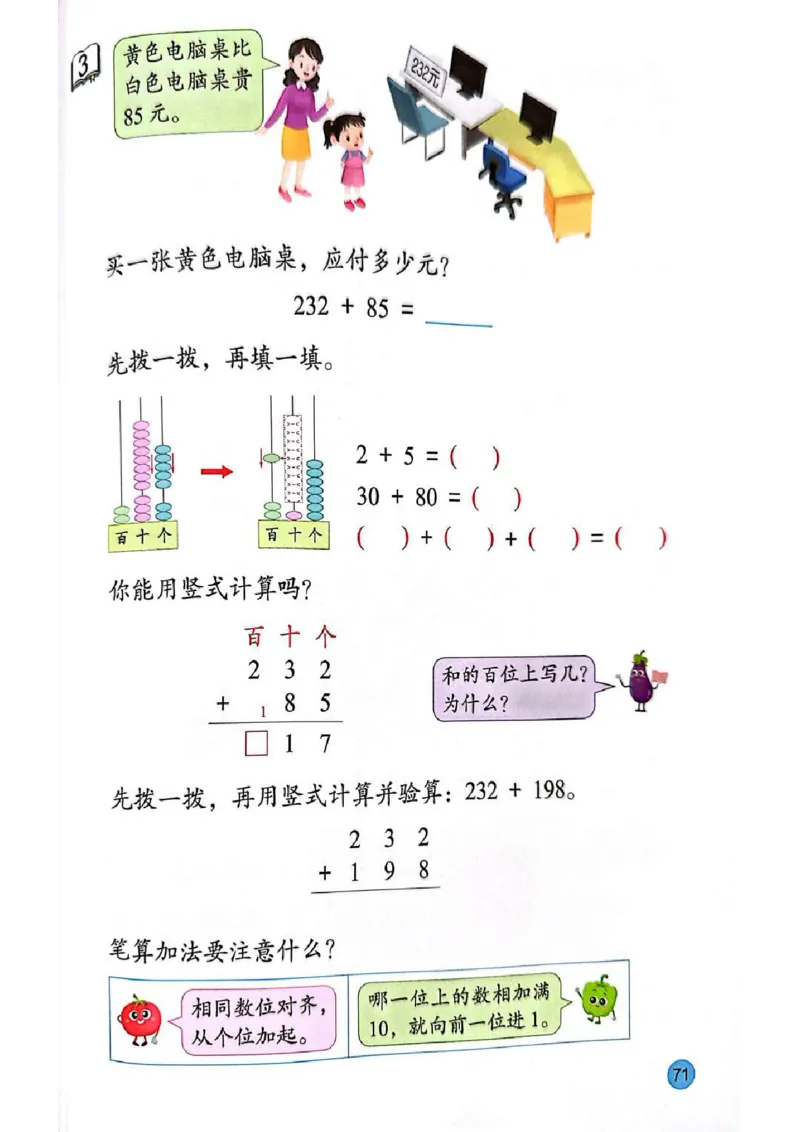 3
黄色电脑桌比
白色电脑桌贵
85元。
232元
买一张黄色电脑桌，应付多少元？
232 + 85 =
先拨一拨，再填一填。
2 + 5 = (  )
30 + 80 = (  )
(  ) + (  ) + (  ) = (  )
百十个
百十个
你能用竖式计算吗？
百 十 个
2 3 2
+ 1 8 5
□ 1 7
和的百位上写几？
为什么？
先拨一拨，再用竖式计算并验算：232 + 198。
2 3 2
+ 1 9 8
笔算加法要注意什么？
相同数位对齐，
从个位加起。
哪一位上的数相加满
10，就向前一位进1。
71